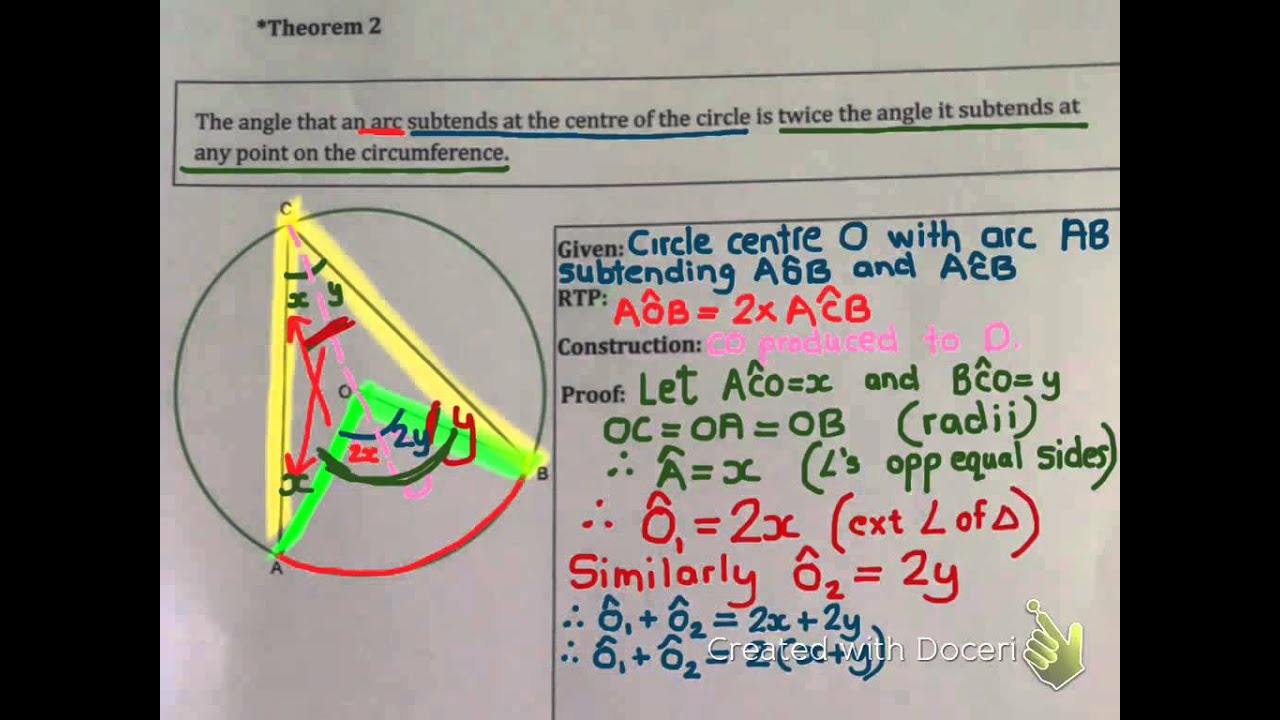 *Theorem 2
The angle that an arc subtends at the centre of the circle is twice the angle it subtends at
any point on the circumference.
C
x y
O
2x 2y y
x
B
D
A
Given: Circle centre O with arc AB
subtending AÔB and AĈB
RTP: AÔB = 2x AĈB
Construction: CO produced to D.
Proof: Let AĈO=x and BĈO=y
OC = OA = OB (radii)
∴ Â = x (∠'s opp equal sides)
∴ Ô₁ = 2x (ext ∠ of Δ)
Similarly Ô₂ = 2y
∴ Ô₁ + Ô₂ = 2x + 2y
∴ Ô₁ + Ô₂ = 2(x+y)
Created with Doceri